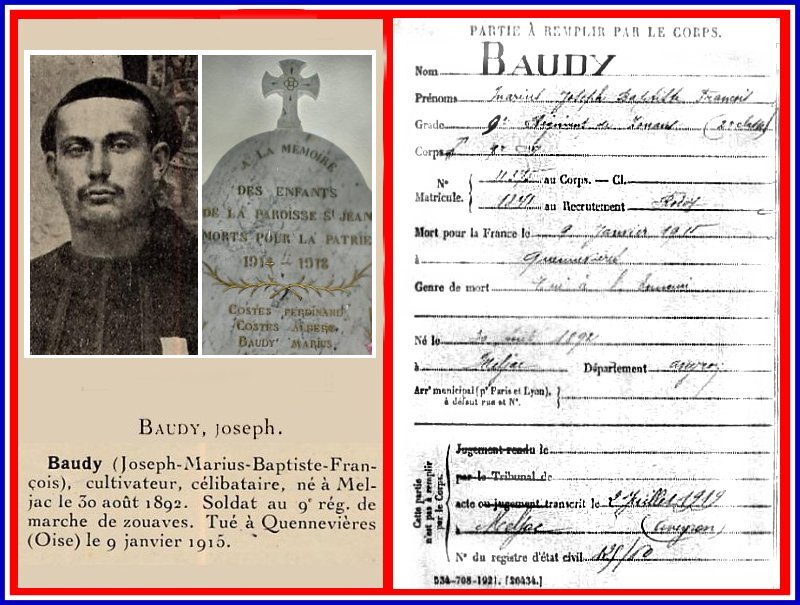 A LA MÉMOIRE
DES ENFANTS
DE LA PAROISSE ST JEAN
MORTS POUR LA PATRIE
1914 - 1918
COSTES FERDINAND
COSTES ALBERT
BAUDY MARIUS.
BAUDY, JOSEPH.
Baudy (Joseph-Marius-Baptiste-Fran-
çois), cultivateur, célibataire, né à Mel-
jac le 30 août 1892. Soldat au 9e rég. de
marche de zouaves. Tué à Quennevières
(Oise) le 9 janvier 1915.
PARTIE À REMPLIR PAR LE CORPS.
Nom BAUDY
Prénoms Marius Joseph Baptiste François
Grade 9e Régiment de Zouaves (2e classe)
Corps
N° Matricule. 11375 au Corps. — Cl.
au Recrutement Rodez
Mort pour la France le 9 Janvier 1915
à Quennevières
Genre de mort Tué à l'ennemi
Né le 30 août 1892
à Meljac Département Aveyron
Arrt municipal (pr Paris et Lyon),
à défaut rue et N°.
Cette partie n'est pas à remplir par le Corps.
Jugement rendu le
par le Tribunal de
acte ou jugement transcrit le 2 Juillet 1919
à Meljac (Aveyron)
N° du registre d'état civil
534-708-1921. [26434.]